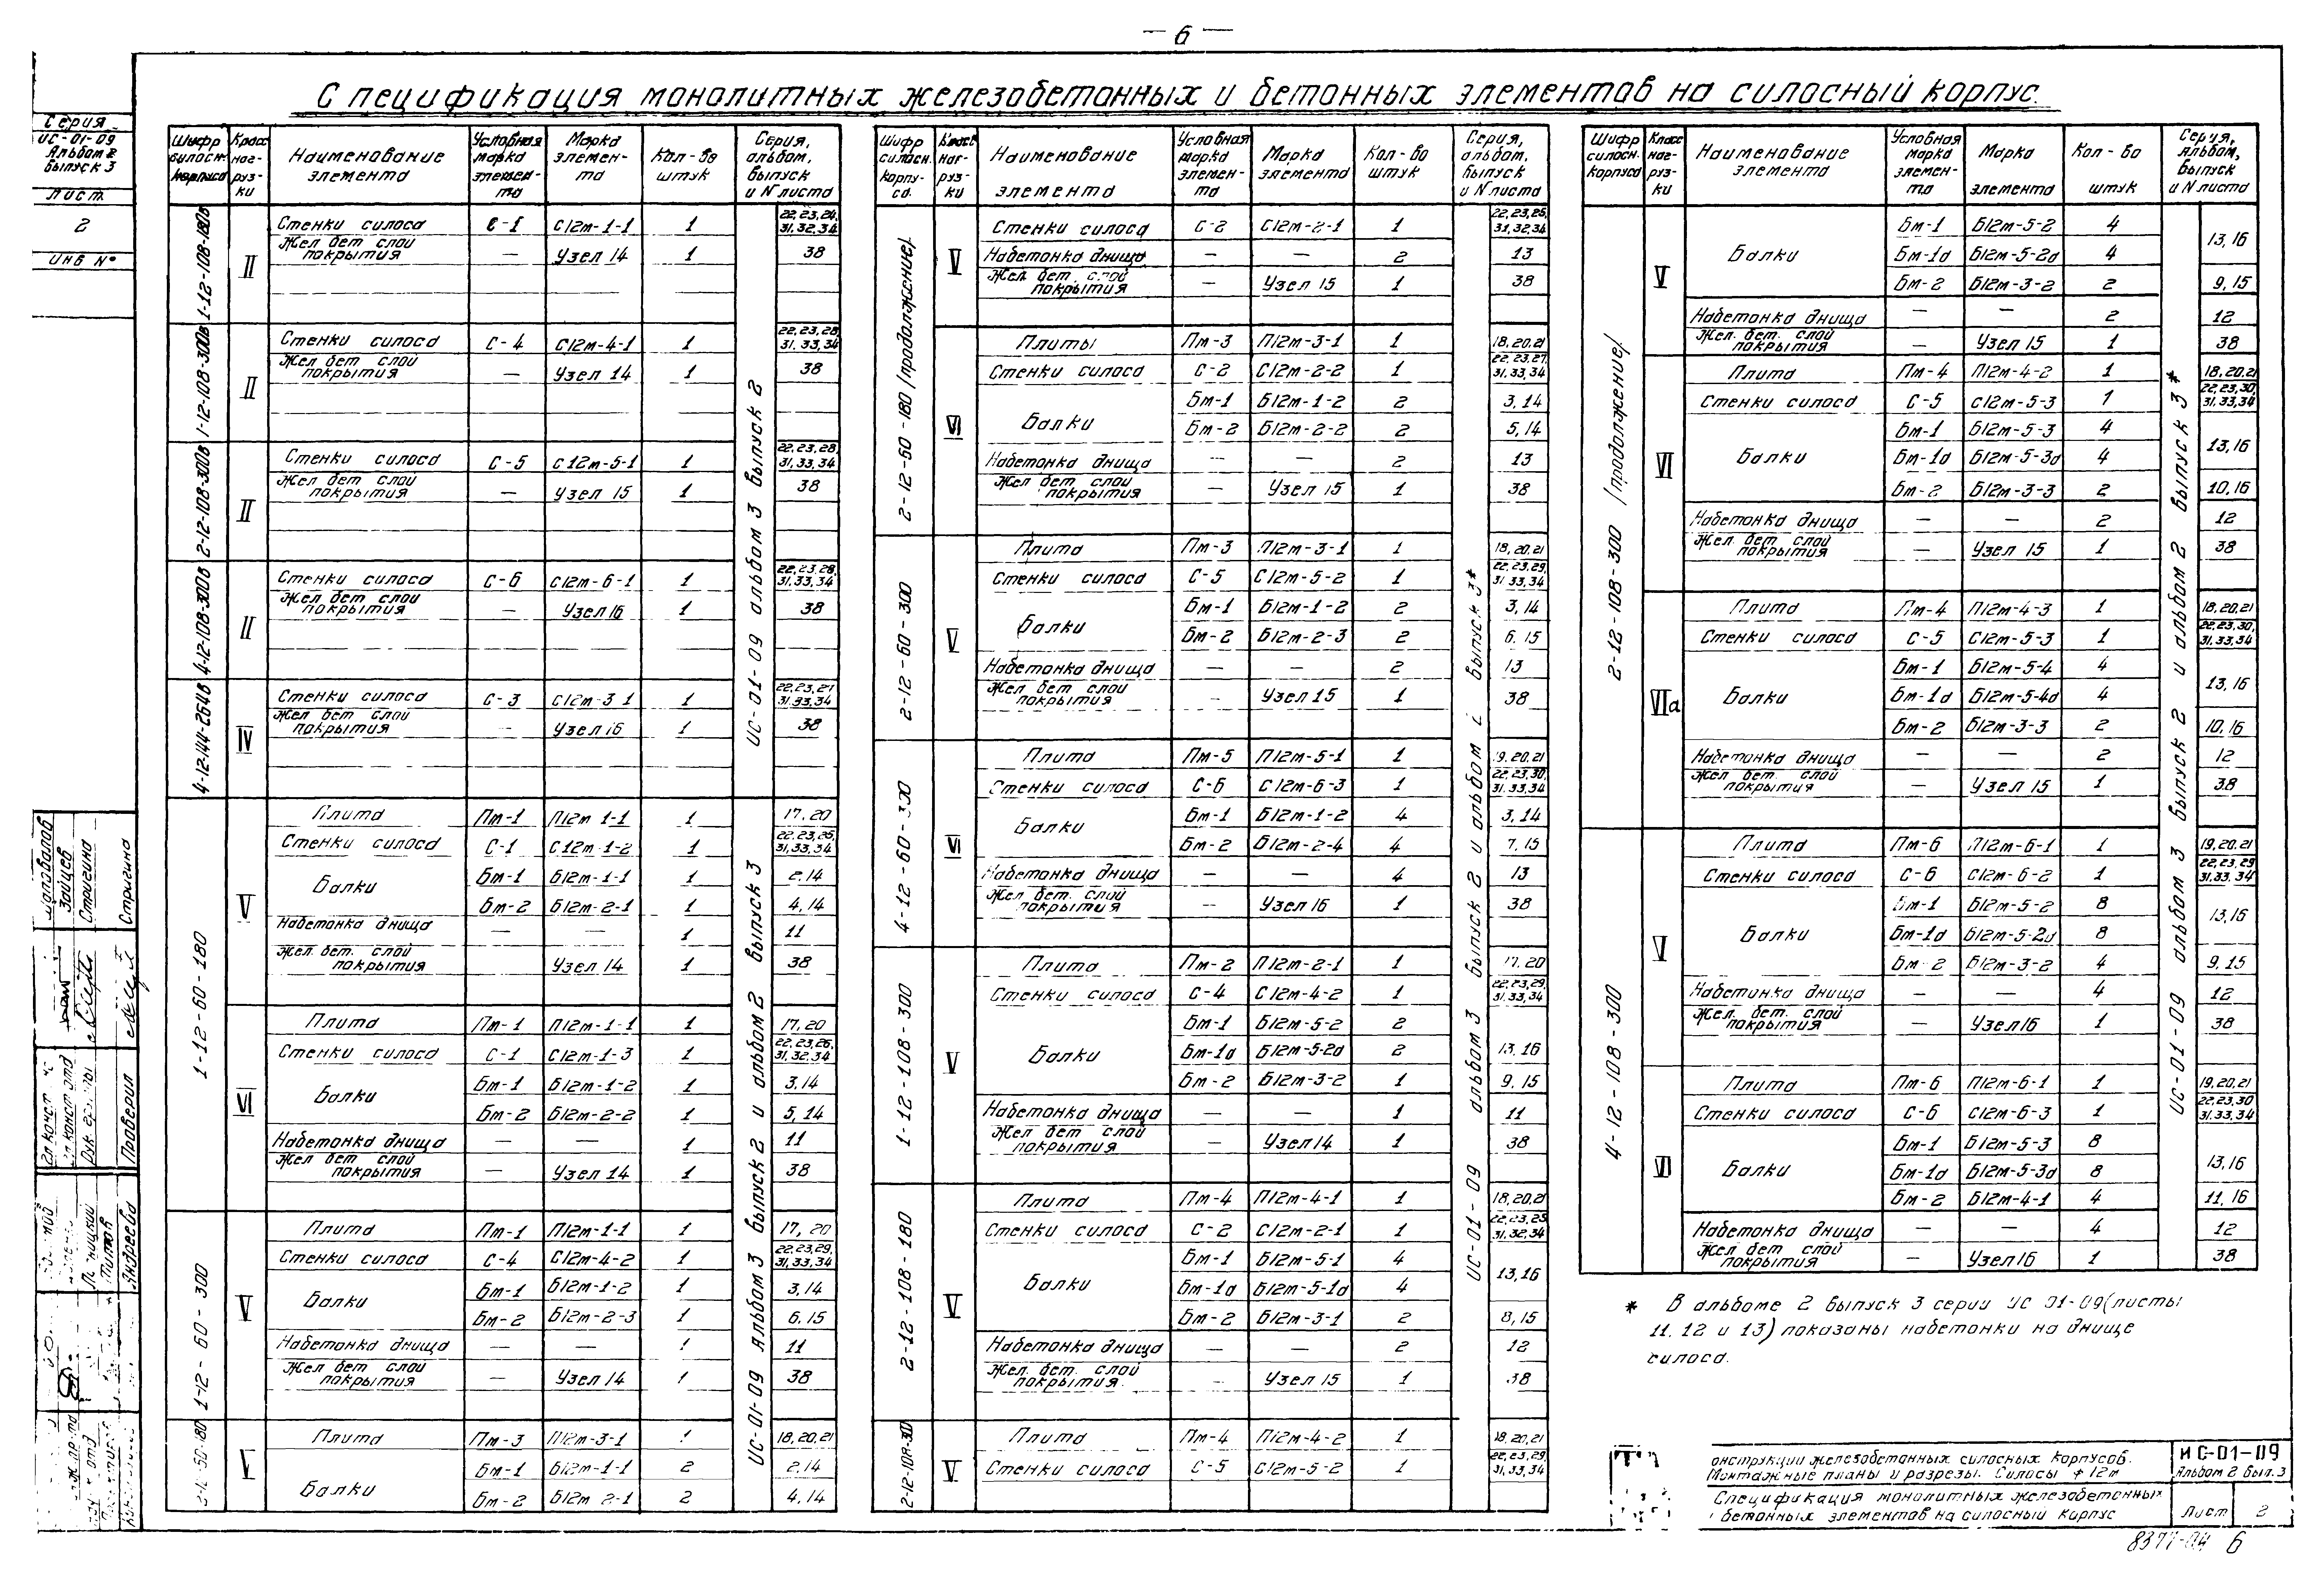 — 6 —
Спецификация монолитных железобетонных и бетонных элементов на силосный корпус.
Серия
ИС-01-09
Альбом 2
Выпуск 3
Лист
2
ИНВ №
Шифр силосн. корпуса | Класс нагрузки | Наименование элемента | Условная марка элемента | Марка элемента | Кол-во штук | Серия, альбом, выпуск и № листа
1-12-108-180в | II
Стенки силоса | С-1 | С12м-1-1 | 1 | 22,23,24, 31,32,34
Жел бет слой покрытия | — | Узел 14 | 1 | 38
1-12-108-300в | II
Стенки силоса | С-4 | С12м-4-1 | 1 | 22,23,28, 31,33,34
Жел бет слой покрытия | — | Узел 14 | 1 | 38
2-12-108-300в | II
Стенки силоса | С-5 | С12м-5-1 | 1 | 22,23,28, 31,33,34
Жел бет слой покрытия | — | Узел 15 | 1 | 38
4-12-108-300в | II
Стенки силоса | С-6 | С12м-6-1 | 1 | 22,23,28, 31,33,34
Жел бет слой покрытия | — | Узел 16 | 1 | 38
4-12-144-264в | IV
Стенки силоса | С-3 | С12м-3 1 | 1 | 31,33,34
Жел бет слой покрытия | — | Узел 16 | 1 | 38
ИС-01-09 альбом 3 выпуск 2
1-12-60-180 | V
Плита | Пм-1 | П12м 1-1 | 1 | 17,20
Стенки силоса | С-1 | С12м 1-2 | 1 | 22,23,26, 31,33,34
Балки | Бм-1 | Б12м-1-1 | 1 | 2,14
Бм-2 | Б12м-2-1 | 1 | 4,14
Набетонка днища | — | — | 1 | 11
Жел. бет. слой покрытия | Узел 14 | 1 | 38
VI
Плита | Пм-1 | П12м-1-1 | 1 | 17,20
Стенки силоса | С-1 | С12м-1-3 | 1 | 22,23,26, 31,32,34
Балки | Бм-1 | Б12м-1-2 | 1 | 3,14
Бм-2 | Б12м-2-2 | 1 | 5,14
Набетонка днища | — | — | 1 | 11
Жел бет слой покрытия | — | Узел 14 | 1 | 38
1-12-60-300 | V
Плита | Пм-1 | П12м-1-1 | 1 | 17,20
Стенки силоса | С-4 | С12м-4-2 | 1 | 22,23,29, 31,33,34
Балки | Бм-1 | Б12м-1-2 | 1 | 3,14
Бм-2 | Б12м-2-3 | 1 | 6,15
Набетонка днища | — | — | 1 | 11
Жел бет слой покрытия | — | Узел 14 | 1 | 38
V
Плита | Пм-3 | П12м-3-1 | 1 | 18,20,21
Балки | Бм-1 | Б12м-1-1 | 2 | 2,14
Бм-2 | Б12м 2-1 | 2 | 4,14
ИС-01-09 альбом 3 выпуск 2 и альбом 2 выпуск 3
Шифр силосн. корпуса. | Класс нагрузки | Наименование элемента | Условная марка элемента | Марка элемента | Кол-во штук | Серия, альбом, выпуск и № листа
2-12-60-180 /продолжение/ | V
Стенки силоса | С-2 | С12м-2-1 | 1 | 22,23,25, 31,32,34
Набетонка днища | — | — | 2 | 13
Жел. бет. слой покрытия | — | Узел 15 | 1 | 38
VI
Плиты | Пм-3 | П12м-3-1 | 1 | 18,20,21
Стенки силоса | С-2 | С12м-2-2 | 1 | 22,23,27, 31,33,34
Балки | Бм-1 | Б12м-1-2 | 2 | 3,14
Бм-2 | Б12м-2-2 | 2 | 5,14
Набетонка днища | — | — | 2 | 13
Жел бет слой покрытия | — | Узел 15 | 1 | 38
2-12-60-300 | V
Плита | Пм-3 | П12м-3-1 | 1 | 18,20,21
Стенки силоса | С-5 | С12м-5-2 | 1 | 22,23,29, 31,33,34
Балки | Бм-1 | Б12м-1-2 | 2 | 3,14
Бм-2 | Б12м-2-3 | 2 | 6,15
Набетонка днища | — | — | 2 | 13
Жел бет слой покрытия | — | Узел 15 | 1 | 38
4-12-60-300 | VI
Плита | Пм-5 | П12м-5-1 | 1 | 19,20,21
Стенки силоса | С-6 | С12м-6-3 | 1 | 22,23,30, 31,33,34
Балки | Бм-1 | Б12м-1-2 | 4 | 3,14
Бм-2 | Б12м-2-4 | 4 | 7,15
Набетонка днища | — | — | 4 | 13
Жел бет слой покрытия | — | Узел 16 | 1 | 38
1-12-108-300 | V
Плита | Пм-2 | П12м-2-1 | 1 | 17,20
Стенки силоса | С-4 | С12м-4-2 | 1 | 22,23,29, 31,33,34
Балки | Бм-1 | Б12м-5-2 | 2
Бм-1а | Б12м-5-2а | 2 | 13,16
Бм-2 | Б12м-3-2 | 1 | 9,15
Набетонка днища | — | — | 1 | 11
Жел бет слой покрытия | — | Узел 14 | 1 | 38
2-12-108-180 | V
Плита | Пм-4 | П12м-4-1 | 1 | 18,20,21
Стенки силоса | С-2 | С12м-2-1 | 1 | 22,23,25 31,32,34
Балки | Бм-1 | Б12м-5-1 | 4 | 13,16
Бм-1а | Б12м-5-1а | 4
Бм-2 | Б12м-3-1 | 2 | 8,15
Набетонка днища | — | — | 2 | 12
Жел. бет. слой покрытия. | — | Узел 15 | 1 | 38
2-12-108-300 | V
Плита | Пм-4 | П12м-4-2 | 1 | 18,20,21
Стенки силоса | С-5 | С12м-5-2 | 1 | 22,23,29, 31,33,34
ИС-01-09 альбом 3 выпуск 2 и альбом 2 выпуск 3*
Шифр силосн. корпуса | Класс нагрузки | Наименование элемента | Условная марка элемента | Марка элемента | Кол-во штук | Серия, альбом, выпуск и № листа
2-12-108-300 /продолжение/ | V
Балки | Бм-1 | Б12м-5-2 | 4 | 13,16
Бм-1а | Б12м-5-2а | 4
Бм-2 | Б12м-3-2 | 2 | 9,15
Набетонка днища | — | — | 2 | 12
Жел. бет. слой покрытия | — | Узел 15 | 1 | 38
VI
Плита | Пм-4 | П12м-4-2 | 1 | 18,20,21
Стенки силоса | С-5 | С12м-5-3 | 1 | 22,23,30, 31,33,34
Балки | Бм-1 | Б12м-5-3 | 4 | 13,16
Бм-1а | Б12м-5-3а | 4
Бм-2 | Б12м-3-3 | 2 | 10,16
Набетонка днища | — | — | 2 | 12
Жел. бет. слой покрытия | — | Узел 15 | 1 | 38
VIIа
Плита | Пм-4 | П12м-4-3 | 1 | 18,20,21
Стенки силоса | С-5 | С12м-5-3 | 1 | 22,23,30, 31,33,34
Балки | Бм-1 | Б12м-5-4 | 4 | 13,16
Бм-1а | Б12м-5-4а | 4
Бм-2 | Б12м-3-3 | 2 | 10,16
Набетонка днища | — | — | 2 | 12
Жел бет. слой покрытия | — | Узел 15 | 1 | 38
4-12-108-300 | V
Плита | Пм-6 | П12м-6-1 | 1 | 19,20,21
Стенки силоса | С-6 | С12м-6-2 | 1 | 22,23,29 31,33,34
Балки | Бм-1 | Б12м-5-2 | 8 | 13,16
Бм-1а | Б12м-5-2а | 8
Бм-2 | Б12м-3-2 | 4 | 9,15
Набетонка днища | — | — | 4 | 12
Жел. бет. слой покрытия | — | Узел 16 | 1 | 38
VI
Плита | Пм-6 | П12м-6-1 | 1 | 19,20,21
Стенки силоса | С-6 | С12м-6-3 | 1 | 22,23,30 31,33,34
Балки | Бм-1 | Б12м-5-3 | 8 | 13,16
Бм-1а | Б12м-5-3а | 8
Бм-2 | Б12м-4-1 | 4 | 11,16
Набетонка днища | — | — | 4 | 12
Жел бет слой покрытия | — | Узел 16 | 1 | 38
ИС-01-09 альбом 3 выпуск 2 и альбом 2 выпуск 3*
* В альбоме 2 выпуск 3 серии ИС 01-09 (листы
11, 12 и 13) показаны набетонки на днище
силоса.
Зайцев
Стригина
Стригина
Проверил
Андреева
онструкции железобетонных силосных корпусов.
Монтажные планы и разрезы. Силосы ф 12м
ИС-01-09
Альбом 2 Вып.3
Спецификация монолитных железобетонных
бетонных элементов на силосный корпус
Лист
2
8377-04 6